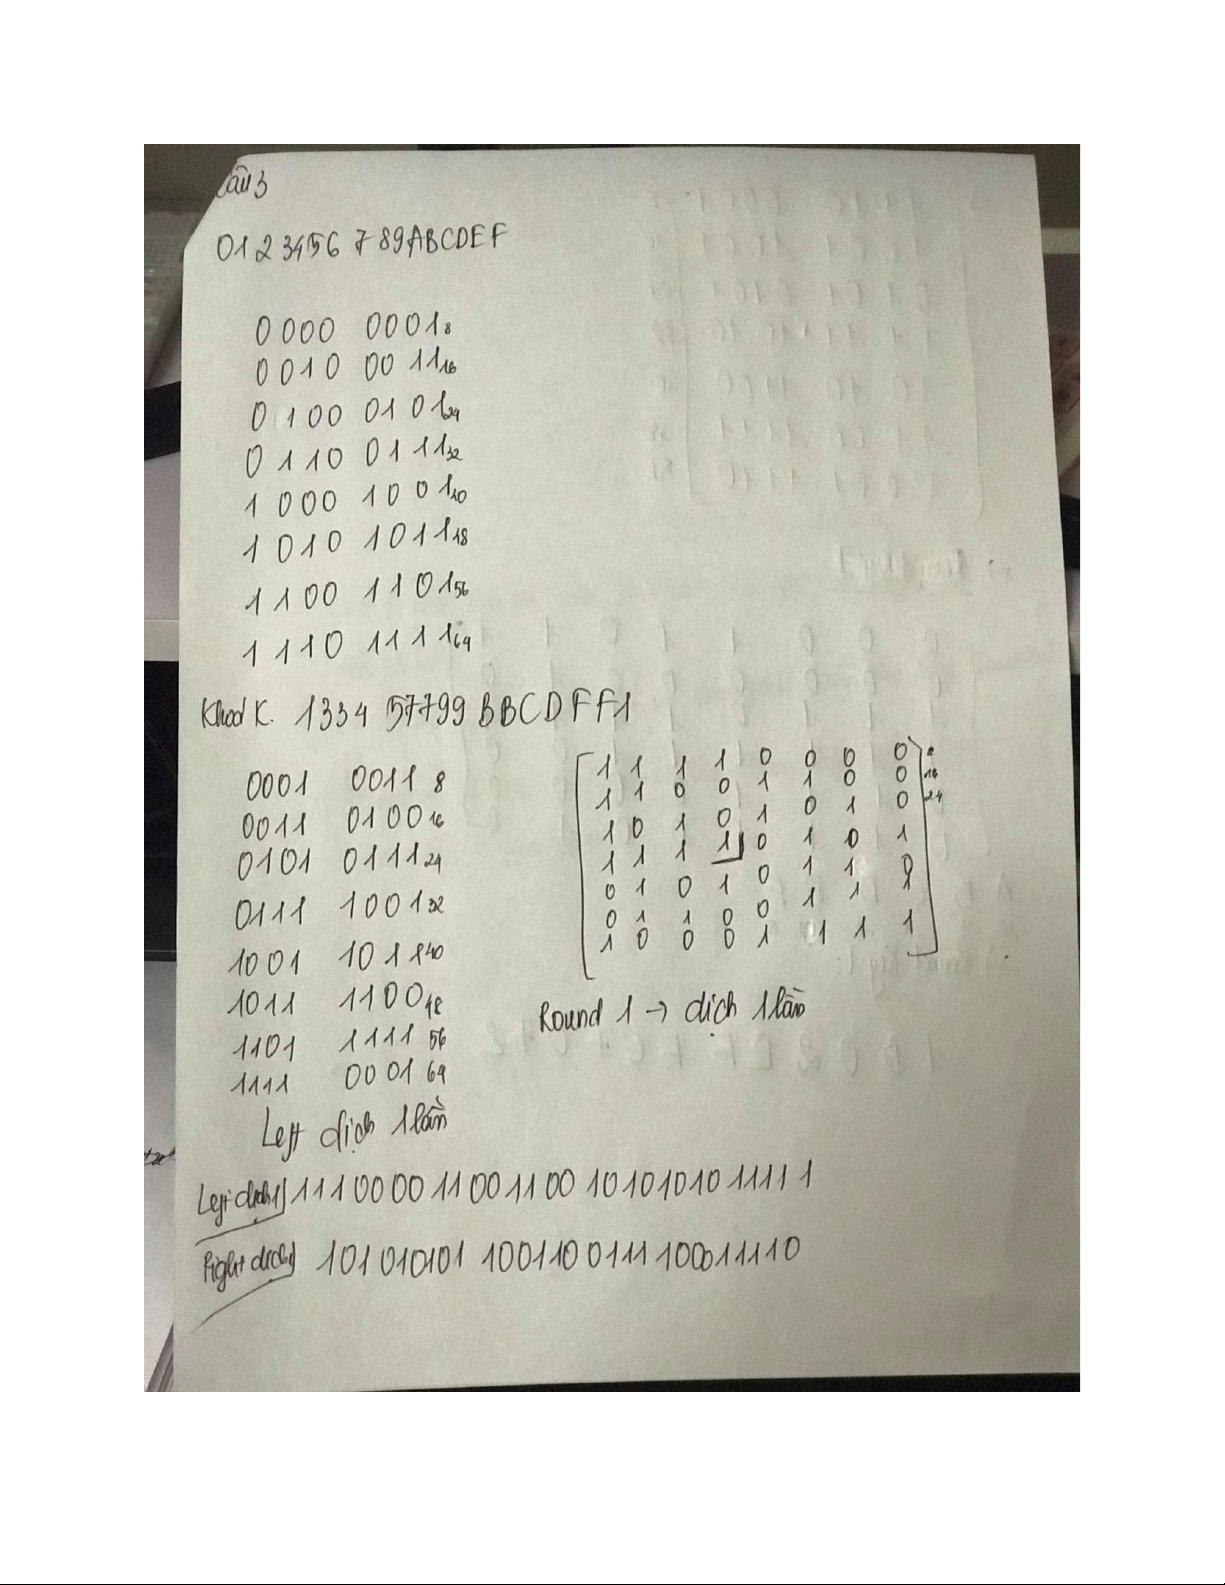 Câu 3
0123456789ABCDEF
0000 0001 8
0010 0011 16
0100 0101 24
0110 0111 32
1000 1001 40
1010 1011 48
1100 1101 56
1110 1111 64
Khoá K. 133457799BBCDFF1
0001 0011 8
0011 0100 16
0101 0111 24
0111 1001 32
1001 1011 40
1011 1100 48
1101 1111 56
1111 0001 64
1 1 1 1 0 0 0 0 8
1 1 0 0 1 1 0 0 16
1 0 1 0 1 0 1 0 24
1 1 1 1 0 1 0 1
0 1 0 1 0 1 1 0
0 1 1 0 0 1 1
1 0 0 0 1 1 1 1
Round 1 → dịch 1 lần
Left dịch 1 lần
Left dịch 1 1110000110011001010101011111
Right dịch 1 1010101011001100111100011110